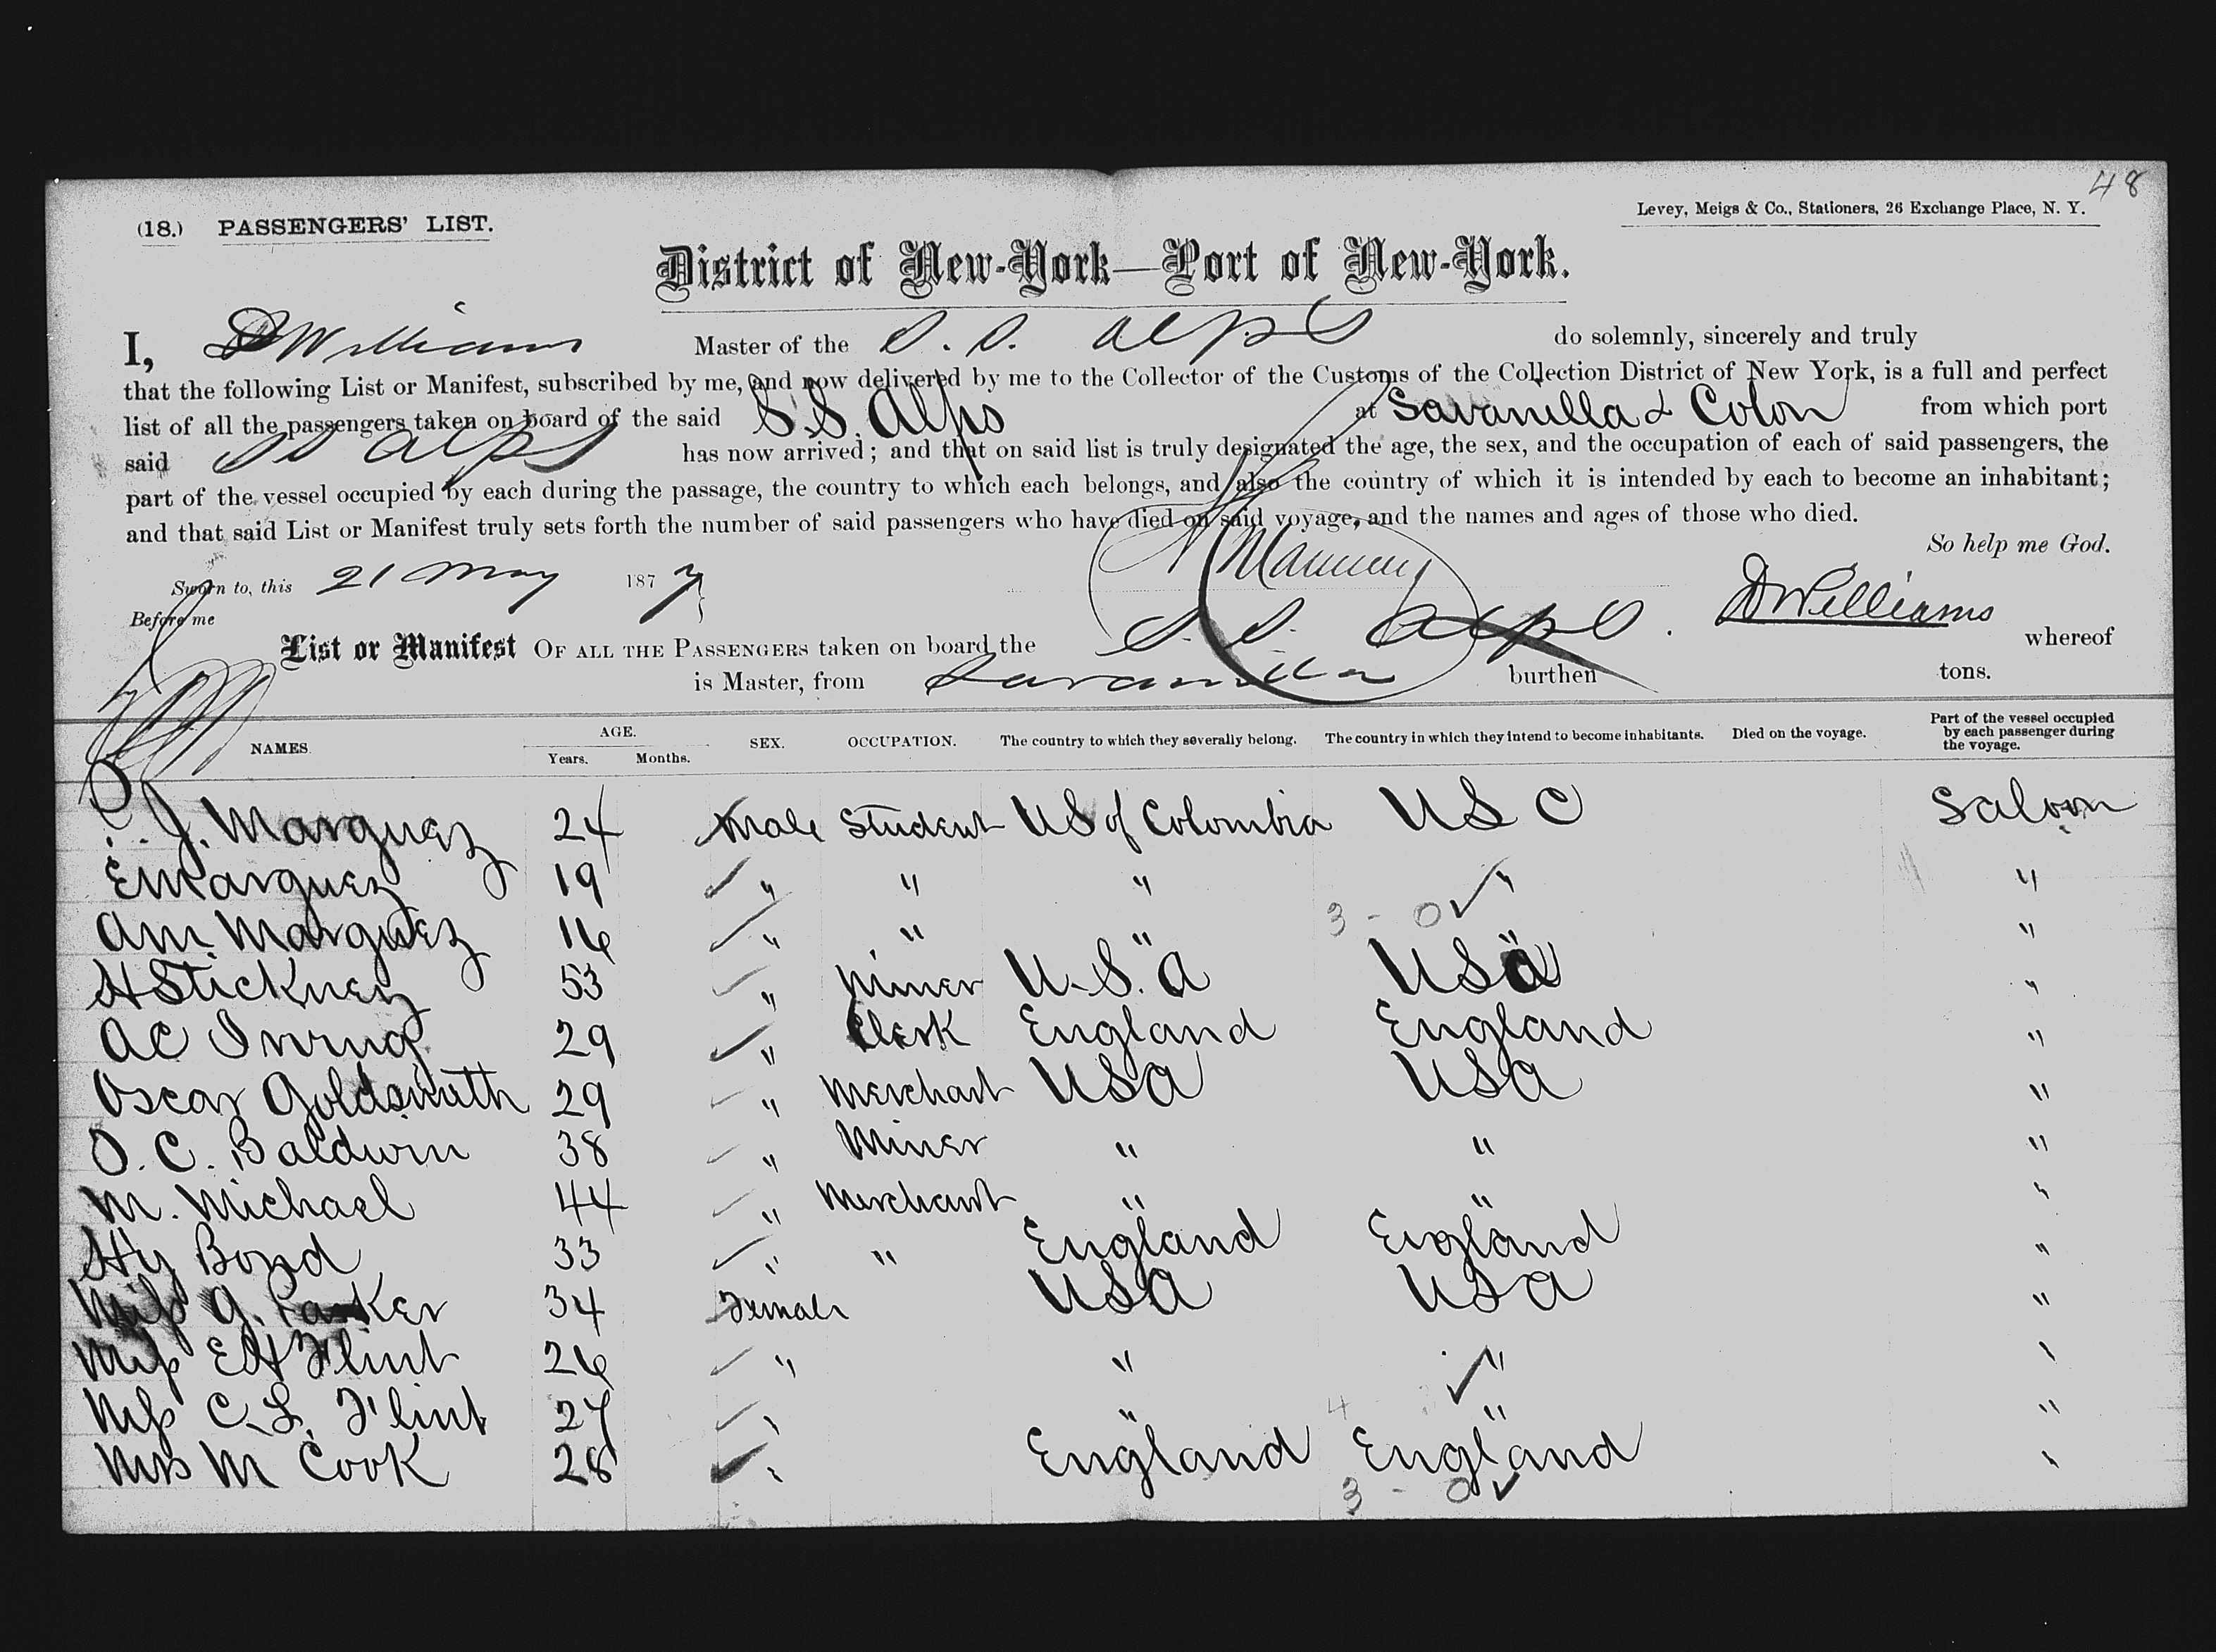 48
(18.) PASSENGERS' LIST.
Levey, Meigs & Co., Stationers, 26 Exchange Place, N. Y.
District of New-York—Port of New-York.
I, D Williams Master of the S. S. Alps do solemnly, sincerely and truly
that the following List or Manifest, subscribed by me, and now delivered by me to the Collector of the Customs of the Collection District of New York, is a full and perfect
list of all the passengers taken on board of the said S.S. Alps at Savanilla & Colon from which port
said SS Alps has now arrived; and that on said list is truly designated the age, the sex, and the occupation of each of said passengers, the
part of the vessel occupied by each during the passage, the country to which each belongs, and also the country of which it is intended by each to become an inhabitant;
and that said List or Manifest truly sets forth the number of said passengers who have died on said voyage, and the names and ages of those who died.
So help me God.
Sworn to, this 21 May 1877
D Williams
Before me
List or Manifest OF ALL THE PASSENGERS taken on board the S. S. Alps. whereof
is Master, from Savanilla burthen tons.
NAMES. AGE. Years. Months. SEX. OCCUPATION. The country to which they severally belong. The country in which they intend to become inhabitants. Died on the voyage. Part of the vessel occupied by each passenger during the voyage.
J. Marquez 24 Male Student US of Colombia US C Saloon
E Marquez 19 " " " " "
3 - 0
Am Marquez 16 " " " " "
H Stickney 53 " Miner U.S.A USA "
AC Irving 29 " Clerk England England "
Oscar Goldsmith 29 " Merchant USA USA "
O. C. Baldwin 38 " Miner " " "
M. Michael 44 " Merchant " " "
Hy Bond 33 " " England England "
Miss A. Parker 34 Female USA USA "
Miss EH Flint 26 " " " "
4
Miss C. L. Flint 27 " " " "
Mrs M Cook 28 " England England "
3 - 0